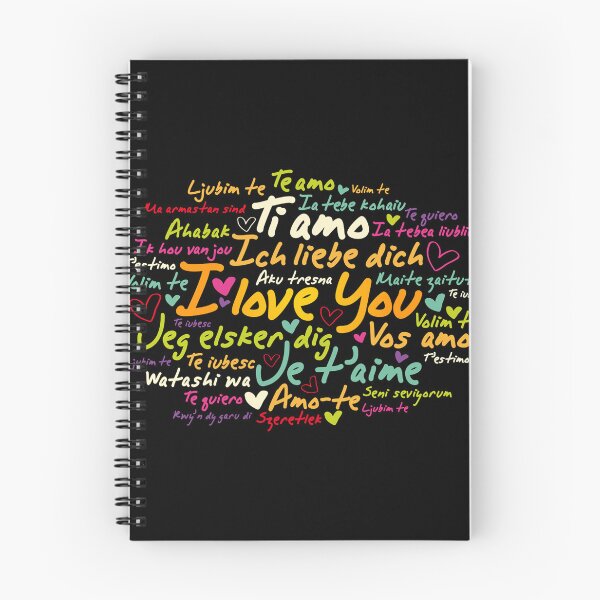 Ljubim te Te amo Volim te
Ma armastan sind Ia tebe kohaiu Te quiero
Ahabak Ti amo Ia tebea liubli
Ik hou van jou Ich liebe dich
T'estimo Aku tresna Maite zaitut
Volim te I love You Te iu
Te iubesc Volim t
Jeg elsker dig Vos amo
Ljubim te Te iubesc Je t'aime T'estimo
Watashi wa Seni seviyorum
Te quiero Amo-te Ljubim te
Rwy'n dy garu di Szeretlek